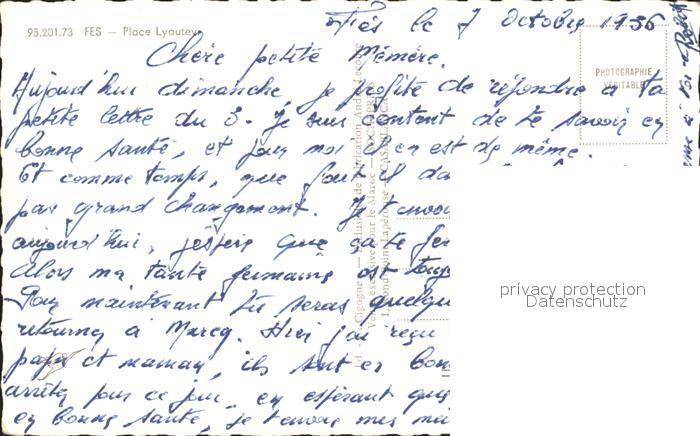 95.201.73 FES — Place Lyautey
Fès le 7 Octobre 1956
PHOTOGRAPHIE
VÉRITABLE
Chère petite Mémère.
Aujourd'hui dimanche je profite de répondre à ta
petite lettre du 3. Je suis content de te savoir en
bonne santé, et pour moi il en est de même.
Et comme temps, que fait il da
pas grand changement. Je t'envoi
aujourd'hui, j'espère que ça te fer
Alors ma tante germaine est touj
Pour maintenant tu seras quelqu
retourner à Marcq. Hier j'ai reçu
papa et maman, ils sont en bon
arrêter pour ce jour, en espérant que
en bonne santé, je t'envoie mes mei
privacy protection
Datenschutz